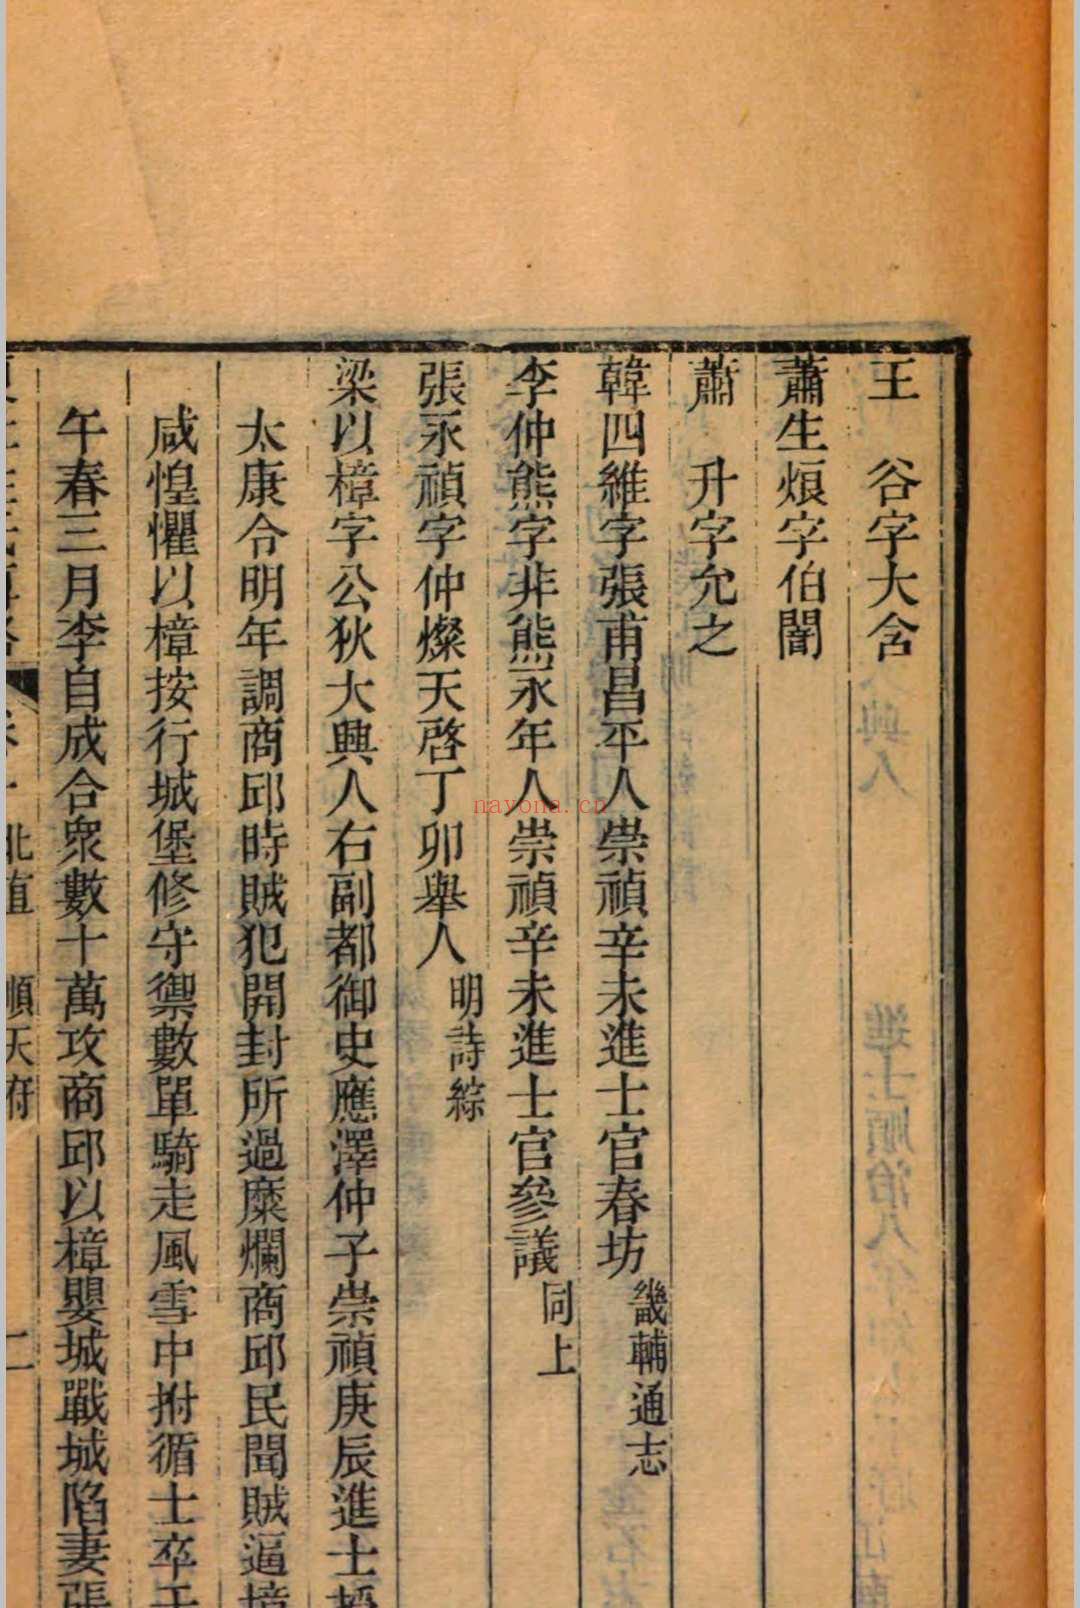 王　谷字大含
蕭生烦字伯闇
蕭　升字允之
韓四維字張甫昌平人崇禎辛未進士官春坊畿輔通志
李仲熊字非熊永年人崇禎辛未進士官參議同上
張永禎字仲燦天啓丁卯舉人明詩綜
梁以樟字公狄大興人右副都御史應澤仲子崇禎庚辰進士授
太康令明年調商邱時賊犯開封所過糜爛商邱民聞賊逼
咸惶懼以樟按行城堡修守禦數單騎走風雪中拊循士卒
午春三月李自成合衆數十萬攻商邱以樟嬰城戰城陷妻張
北直　順天府　二
nayona.cn